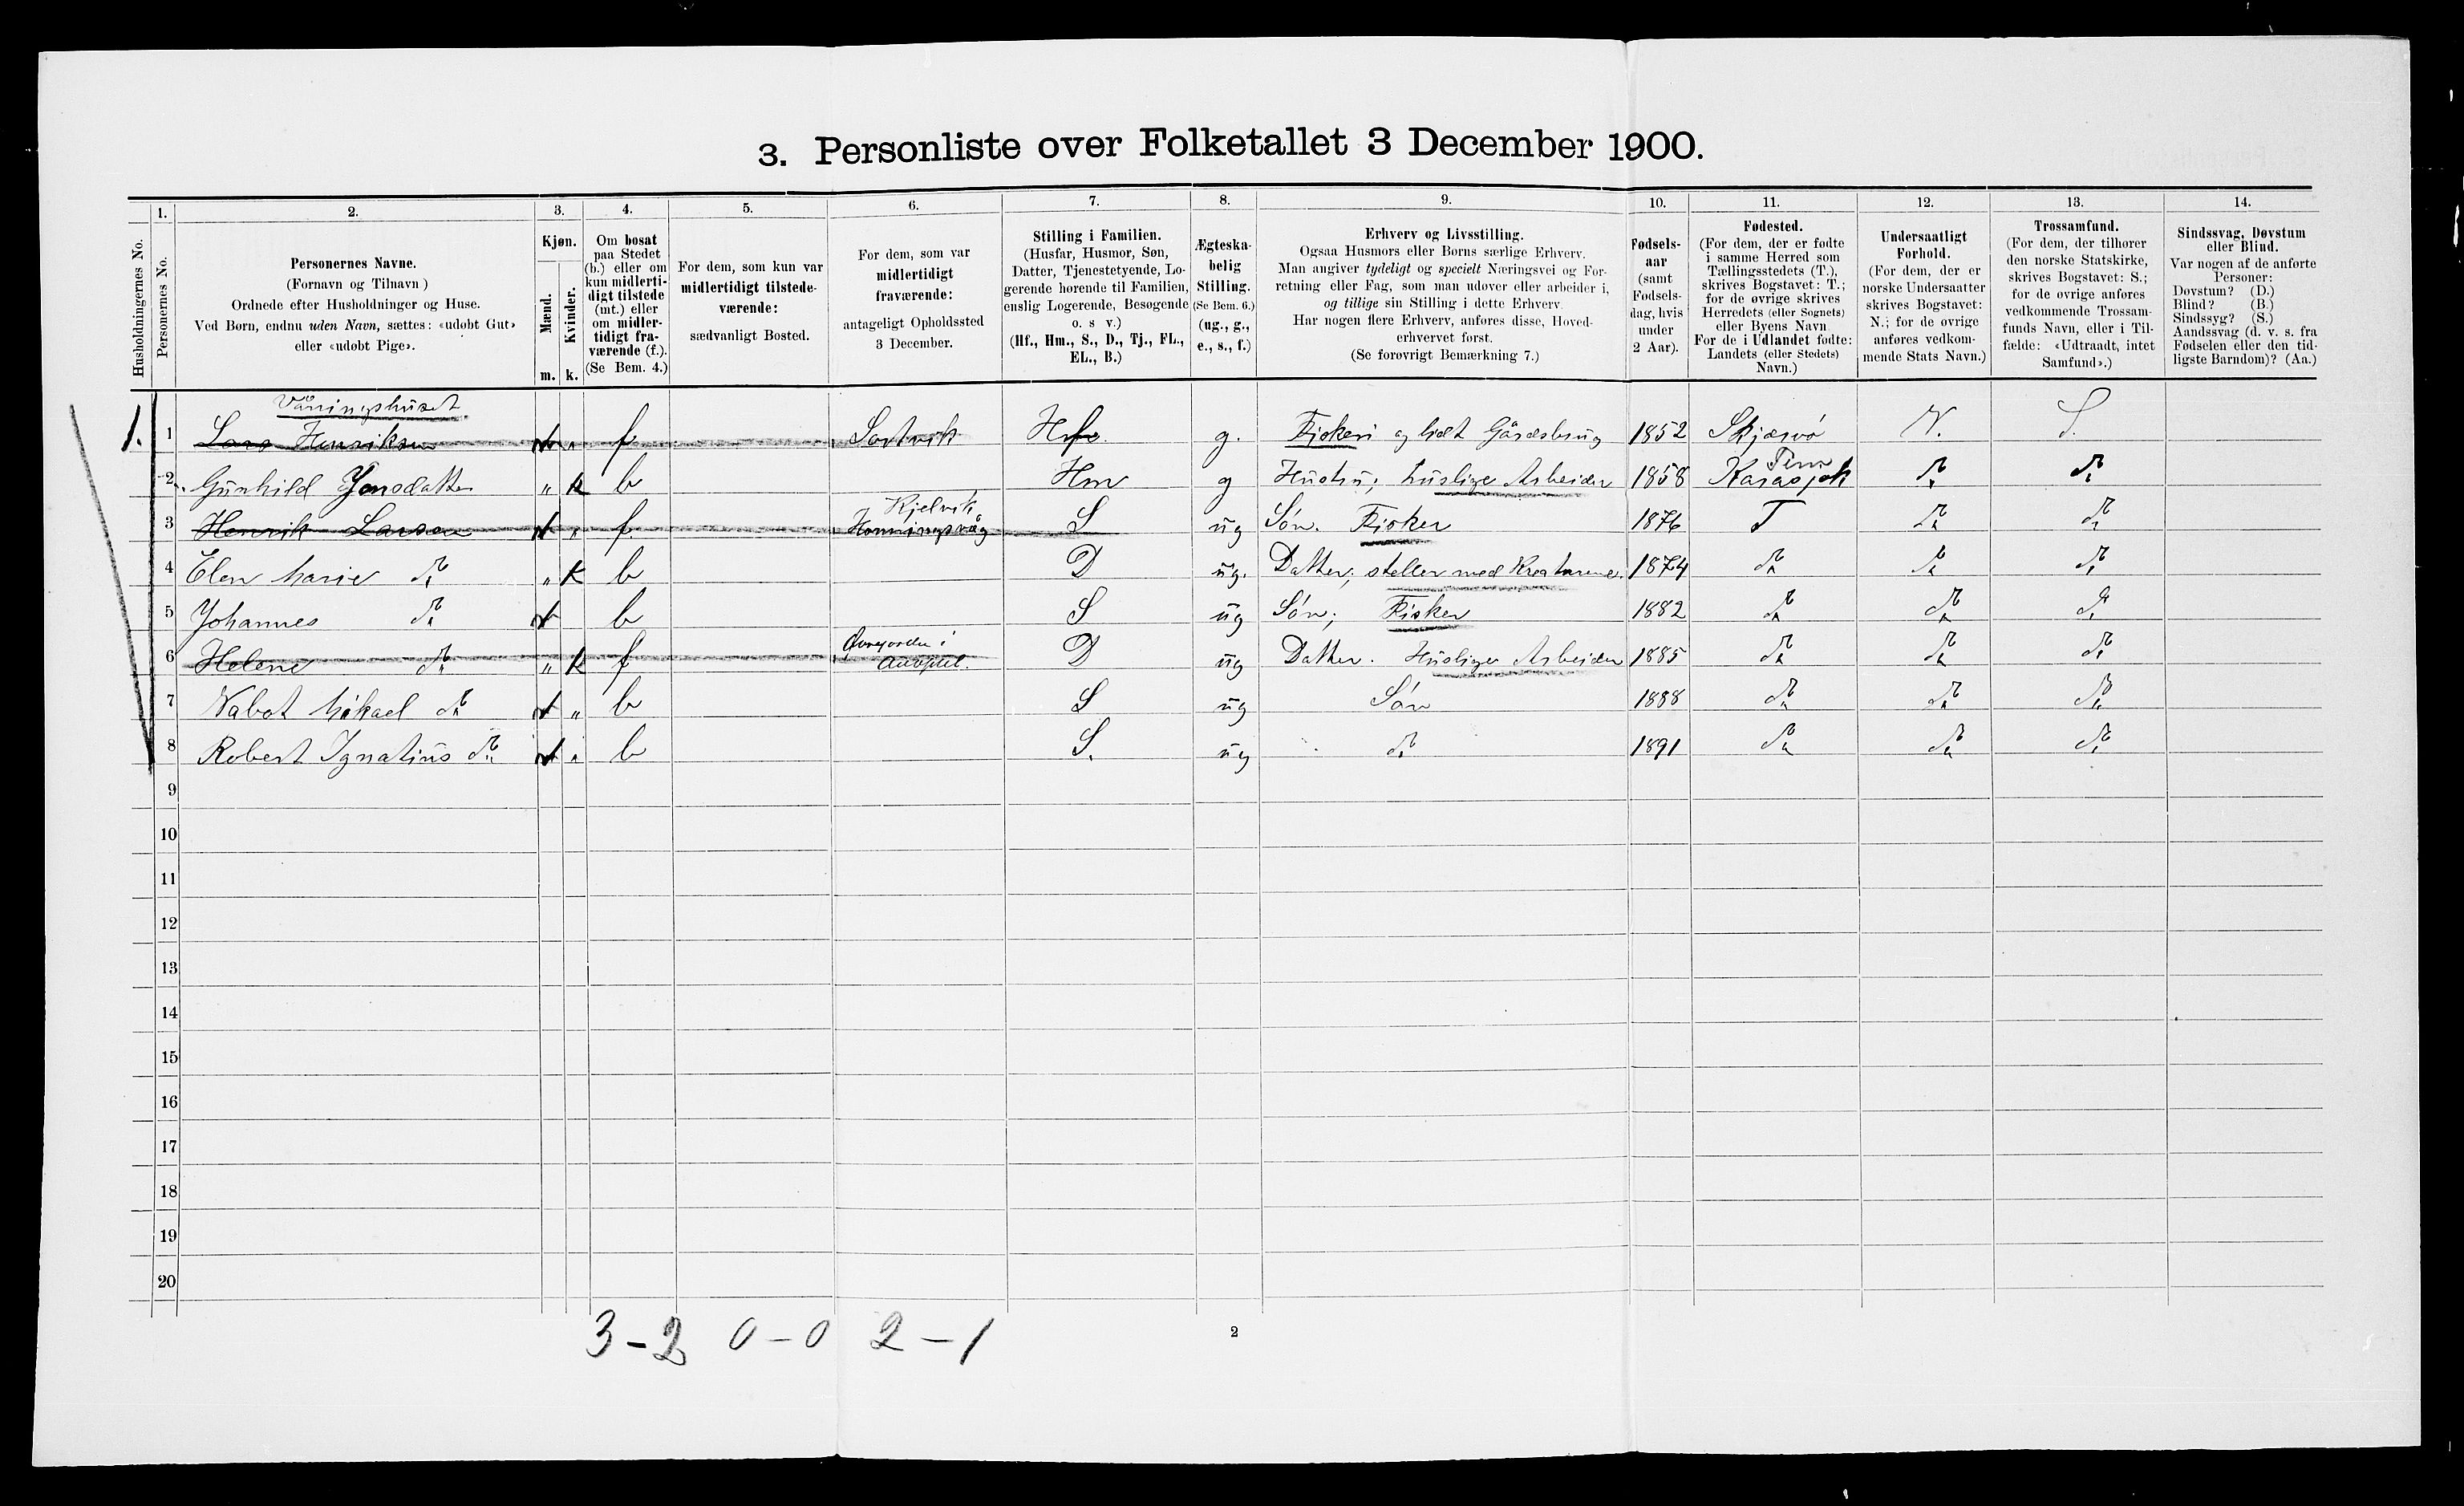 3. Personliste over Folketallet 3 December 1900.
1. 2. 3. 4. 5. 6. 7. 8. 9. 10. 11. 12. 13. 14.
Husholdningernes No.
Personernes No.
Personernes Navne.
(Fornavn og Tilnavn.)
Ordnede efter Husholdninger og Huse.
Ved Børn, endnu uden Navn, sættes: «udøbt Gut»
eller «udøbt Pige».
Kjøn.
Mænd.
Kvinder.
m. k.
Om bosat
paa Stedet
(b.) eller om
kun midlerti-
digt tilstede
(mt.) eller
om midler-
tidigt fra-
værende (f.).
(Se Bem. 4.)
For dem, som kun var
midlertidigt tilstede-
værende:
sædvanligt Bosted.
For dem, som var
midlertidigt
fraværende:
antageligt Opholdssted
3 December.
Stilling i Familien.
(Husfar, Husmor, Søn,
Datter, Tjenestetyende, Lo-
gerende hørende til Familien,
enslig Logerende, Besøgende
o. s v.)
(Hf., Hm., S., D., Tj., FL.,
EL., B.)
Ægteska-
belig
Stilling.
(Se Bem. 6.)
(ug., g.,
e., s., f.)
Erhverv og Livsstilling.
Ogsaa Husmors eller Børns særlige Erhverv.
Man angiver tydeligt og specielt Næringsvei og For-
retning eller Fag, som man udøver eller arbeider i,
og tillige sin Stilling i dette Erhverv.
Har nogen flere Erhverv, anføres disse, Hoved-
erhvervet først.
(Se forøvrigt Bemærkning 7.)
Fødsels-
aar
(samt
Fødsels-
dag, hvis
under
2 Aar).
Fødested.
(For dem, der er fødte
i samme Herred som
Tællingsstedets (T.),
skrives Bogstavet: T.;
for de øvrige skrives
Herredets (eller Sognets)
eller Byens Navn
For de i Udlandet fødte:
Landets (eller Stedets)
Navn.)
Undersaatligt
Forhold.
(For dem, der er
norske Undersaatter
skrives Bogstavet:
N.; for de øvrige
anføres vedkom-
mende Stats Navn.)
Trossamfund.
(For dem, der tilhører
den norske Statskirke,
skrives Bogstavet: S.;
for de øvrige anføres
vedkommende Trossam-
funds Navn, eller i Til-
fælde: «Udtraadt, intet
Samfund».)
Sindssvag, Døvstum
eller Blind.
Var nogen af de anførte
Personer:
Døvstum? (D.)
Blind? (B.)
Sindssyg? (S.)
Aandssvag (d. v. s. fra
Fødselen eller den tid-
ligste Barndom)? (Aa.)
Våningshuset
1. 1 Lars Henriksen f Sortvik Hf g. Fiskeri og lidt Gårdsbrug 1852 Skjærvö N. S.
2 Gunhild Jensdatter „ k b Hm g Hustru; huslige Arbeider 1858 Karasjok do do
Kjelvik
3 Henrik Larsen f Honningsvåg S ug Søn. Fisker 1876 T do do
4 Elen Marie do „ k b D ug. Datter; steller med Kreaturene. 1874 do do do
5 Johannes do b S ug Søn; Fisker 1882 do do do
6 Helene do „ k f D ug Datter. Huslige Arbeider 1885 do do do
7 Nabot Mikael do „ b S ug Søn 1888 do do do
8 Robert Ignatius do „ b S. ug do 1891 do do do
9
10
11
12
13
14
15
16
17
18
19
20
3-2 0-0 2-1
2